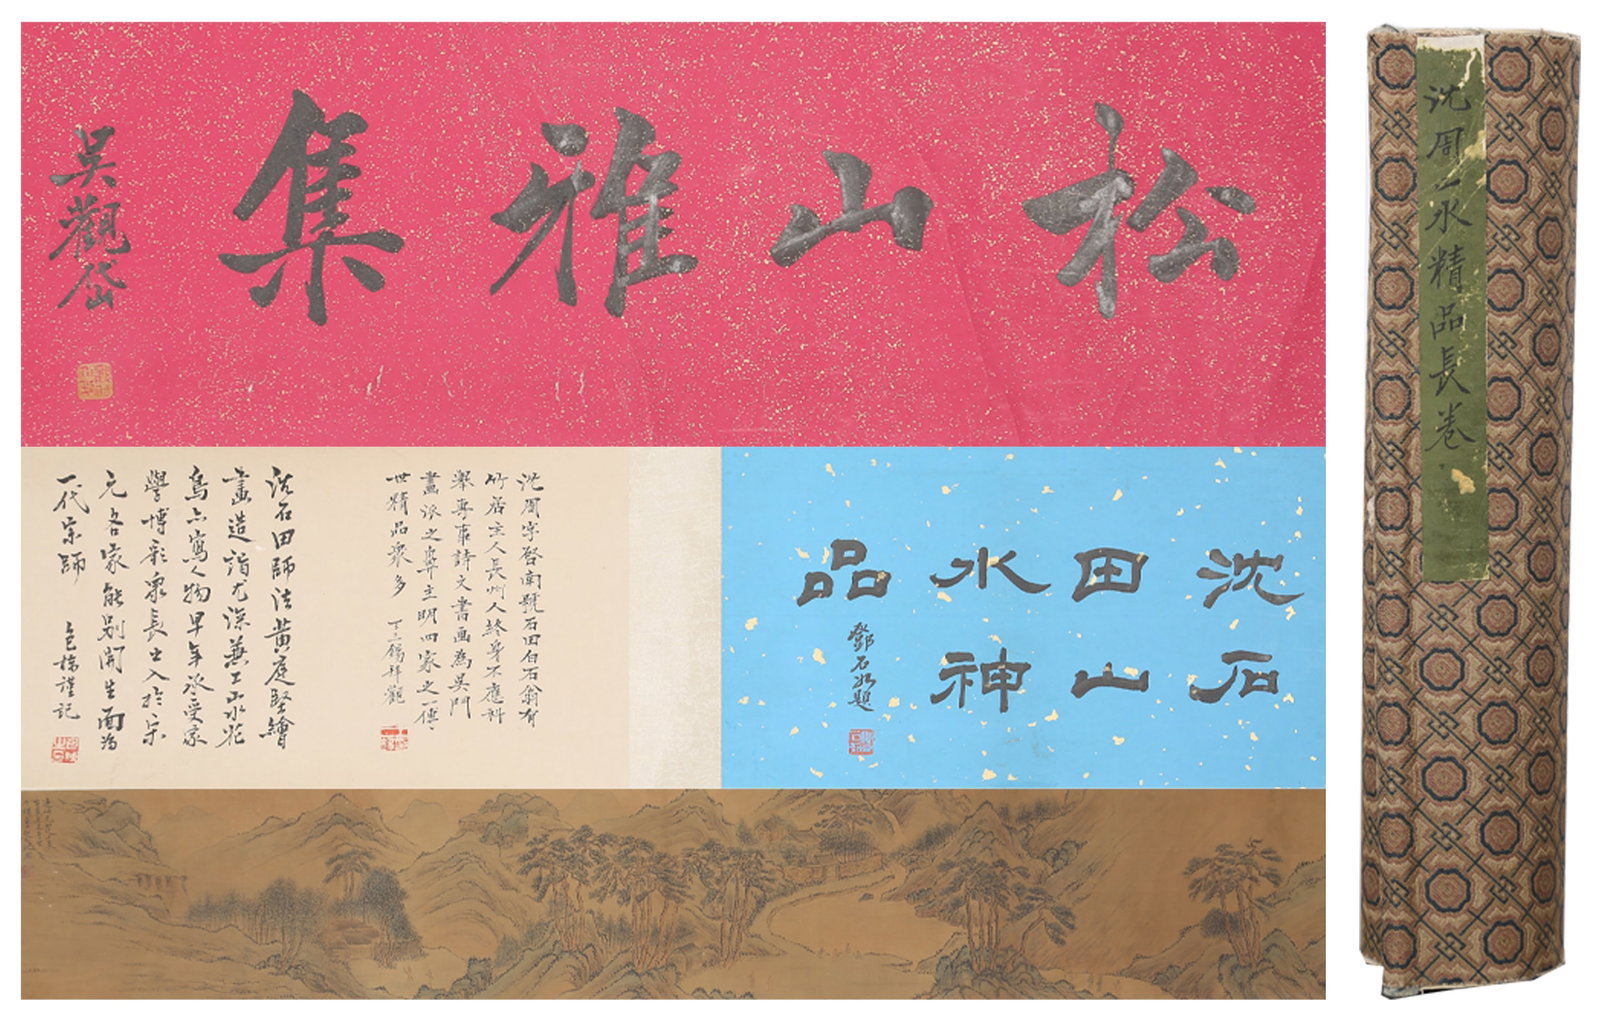 松山雅集
吳觀岱
沈石
田山
水神
品
鄧石如題
沈周字啓南號石田白石翁有
竹居主人長州人終身不應科
舉專事詩文書画為吳門
畫派之冀主明四家之一傳
世精品衆多
丁二鶴拜觀
沈石田師法黃庭堅繪
畫造詣尤深兼工山水花
鳥亦寫人物早年承受家
學博彩衆長出入於宋
元各家能別開生面為
一代宗師
包棟謹記
沈周山水精品長卷